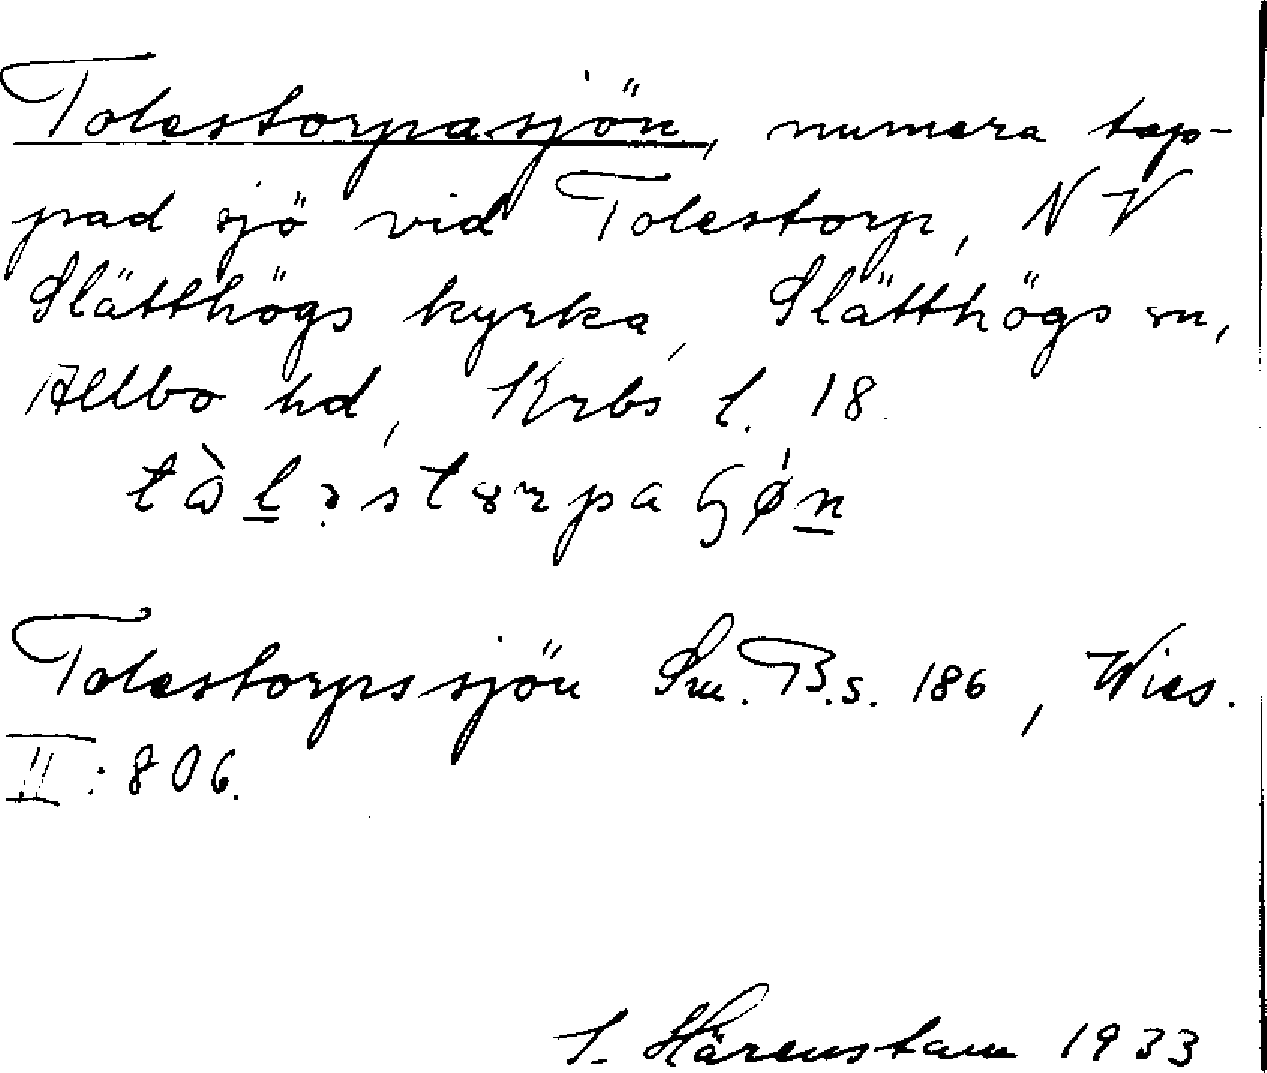 Tolestorpasjön, numera tap-
pad sjö vid Tolestorp, NV
Slätthögs kyrka, Slätthögs sn,
Allbo hd, Krbs l. 18.
Tolestorpssjön Sm. B. s. 186, Wies.
II: 806.
S. Härenstam 1933